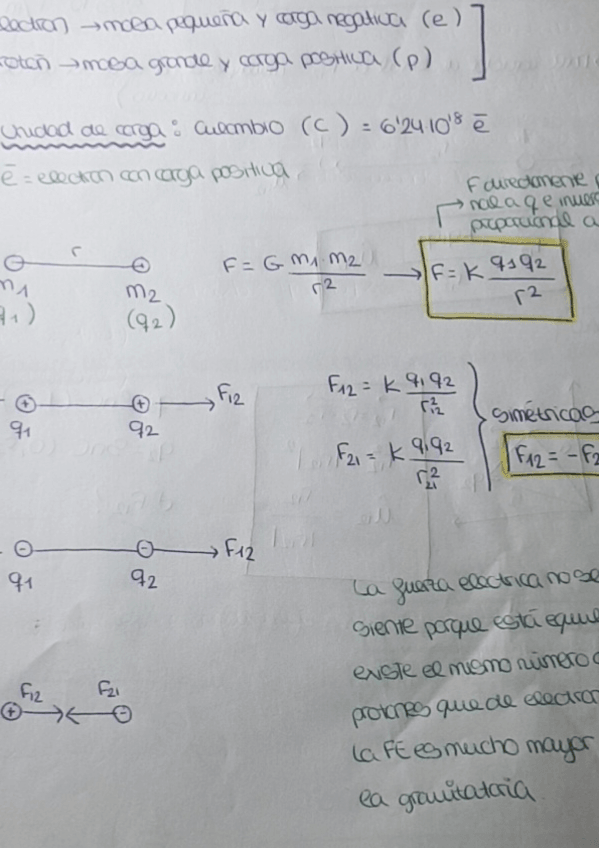 electron → masa pequeña y carga negativa (e)
roton → masa grande y carga positiva (p)
unidad de carga: culombio (C) = 6'24·10¹⁸ ē
ē = electron con carga positiva
F directamente
nal a q e inver
proporcional a
r
m₁ m₂
q₁) (q₂)
F = G m₁·m₂ / r² → F = K q₁q₂ / r²
+ + F₁₂
q₁ q₂
F₁₂ = K q₁q₂ / r₁₂²
F₂₁ = K q₁q₂ / r₂₁²
simétricas
F₁₂ = -F₂
- - F₁₂
q₁ q₂
F₁₂ F₂₁
+ → ← -
La fuerza electrica no se
siente porque está equil
existe el mismo número d
protones que de electron
La FE es mucho mayor
la gravitatoria